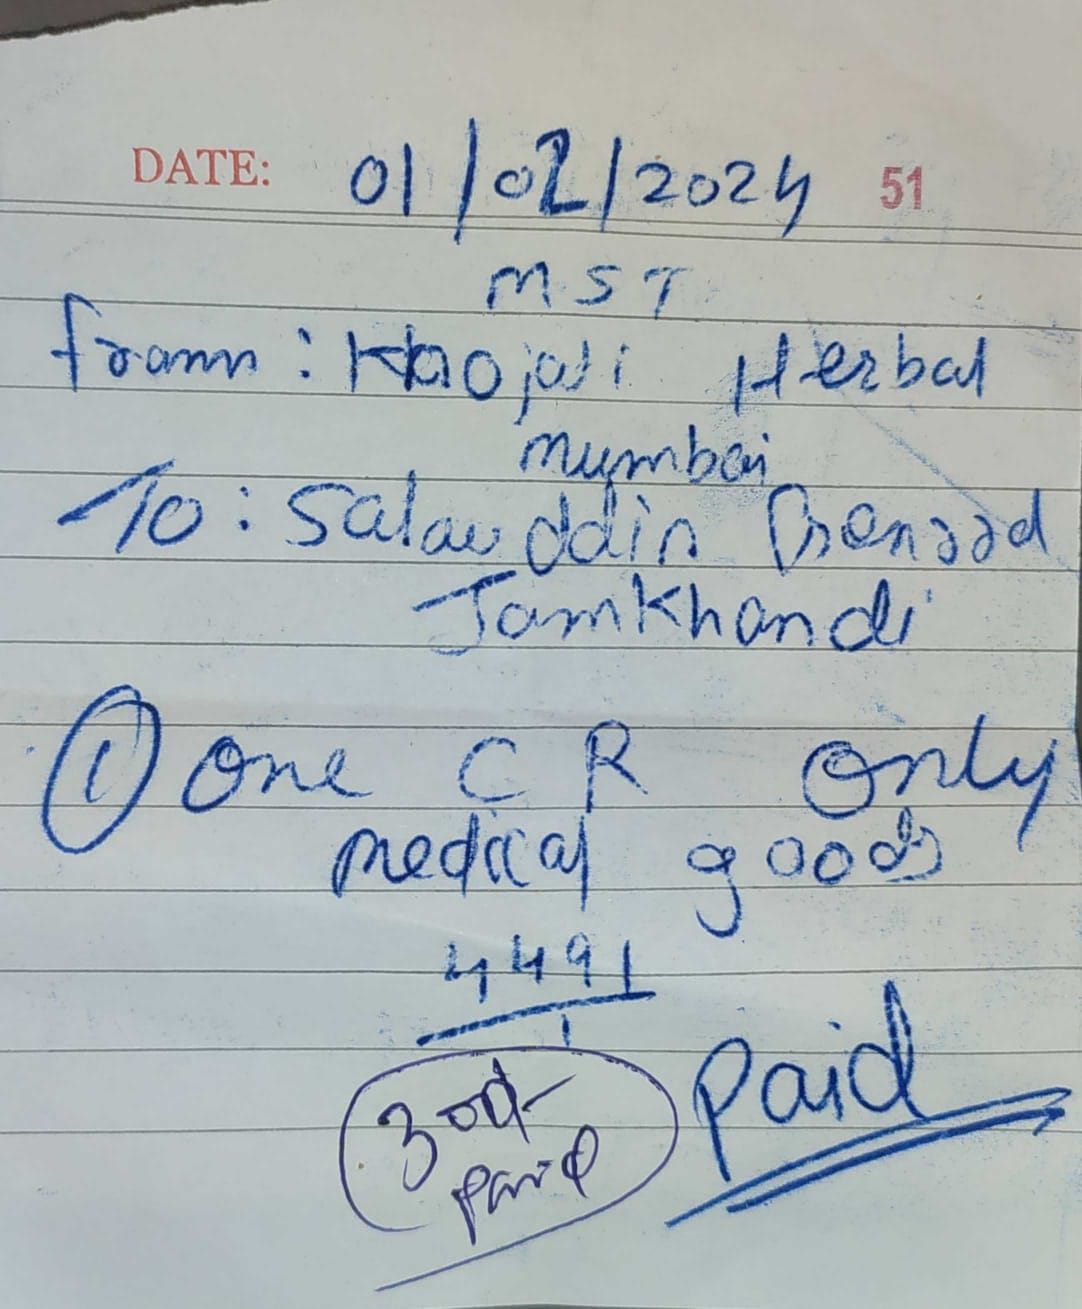 DATE: 01/02/2024 51
M S T
from : Herbal
Mumbai
To : Salauddin
Jamkhandi
① One C R Only
medical goods
4491
1
300/-
paid
Paid